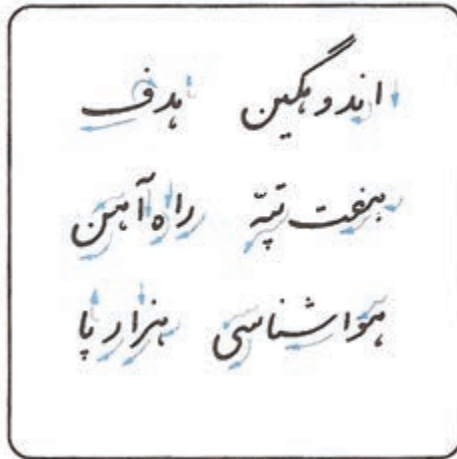 اندوهگین هدف
هفت تپّه راه آهن
هواشناسی هزارپا